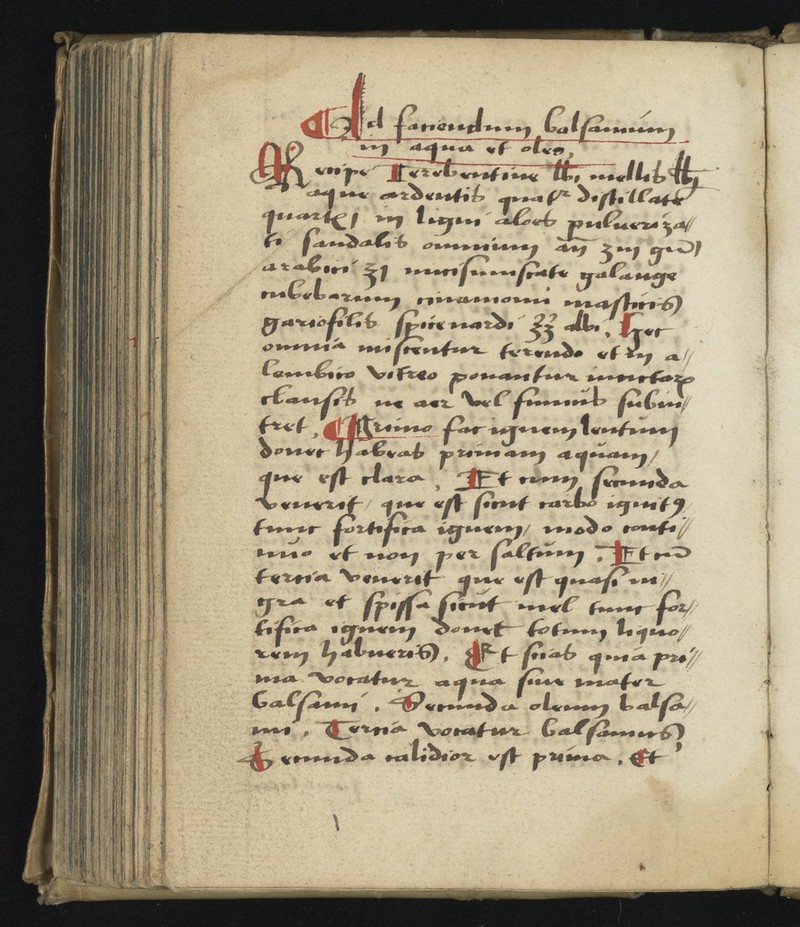 Ad faciendum balsamum
in aqua et oleo.
Recipe Terebentine lb j mellis lb ij
aque ardentis quatr distillate
quart j in ligni aloes pulueriza//
ti sandalis omnium an̄ ʒ iij gū
arabici ʒ j nucismuscate galange
cubebarum cinamomi masticis
gariofilis spicenardi ʒʒ albi. Hec
omnia miscentur terendo et in a//
lembico vitreo ponantur iuncturꝭ
clausis ne aer vel fumus subin//
tret. Primo fac ignem lentum
donec habeas primam aquam /
que est clara. Et cum secunda
venerit / que est sicut carbo ignitꝰ
tunc fortifica ignem / modo conti//
nuo et non per saltum. Et cū
tercia venerit que est quasi ni//
gra et spissa sicut mel tunc for//
tifica ignem donec totum liquo//
rem habueris. Et scias quia pri//
ma vocatur aqua siue mater
balsami. Secunda oleum balsa//
mi. Tercia vocatur balsamus
Secunda calidior est prima. Et